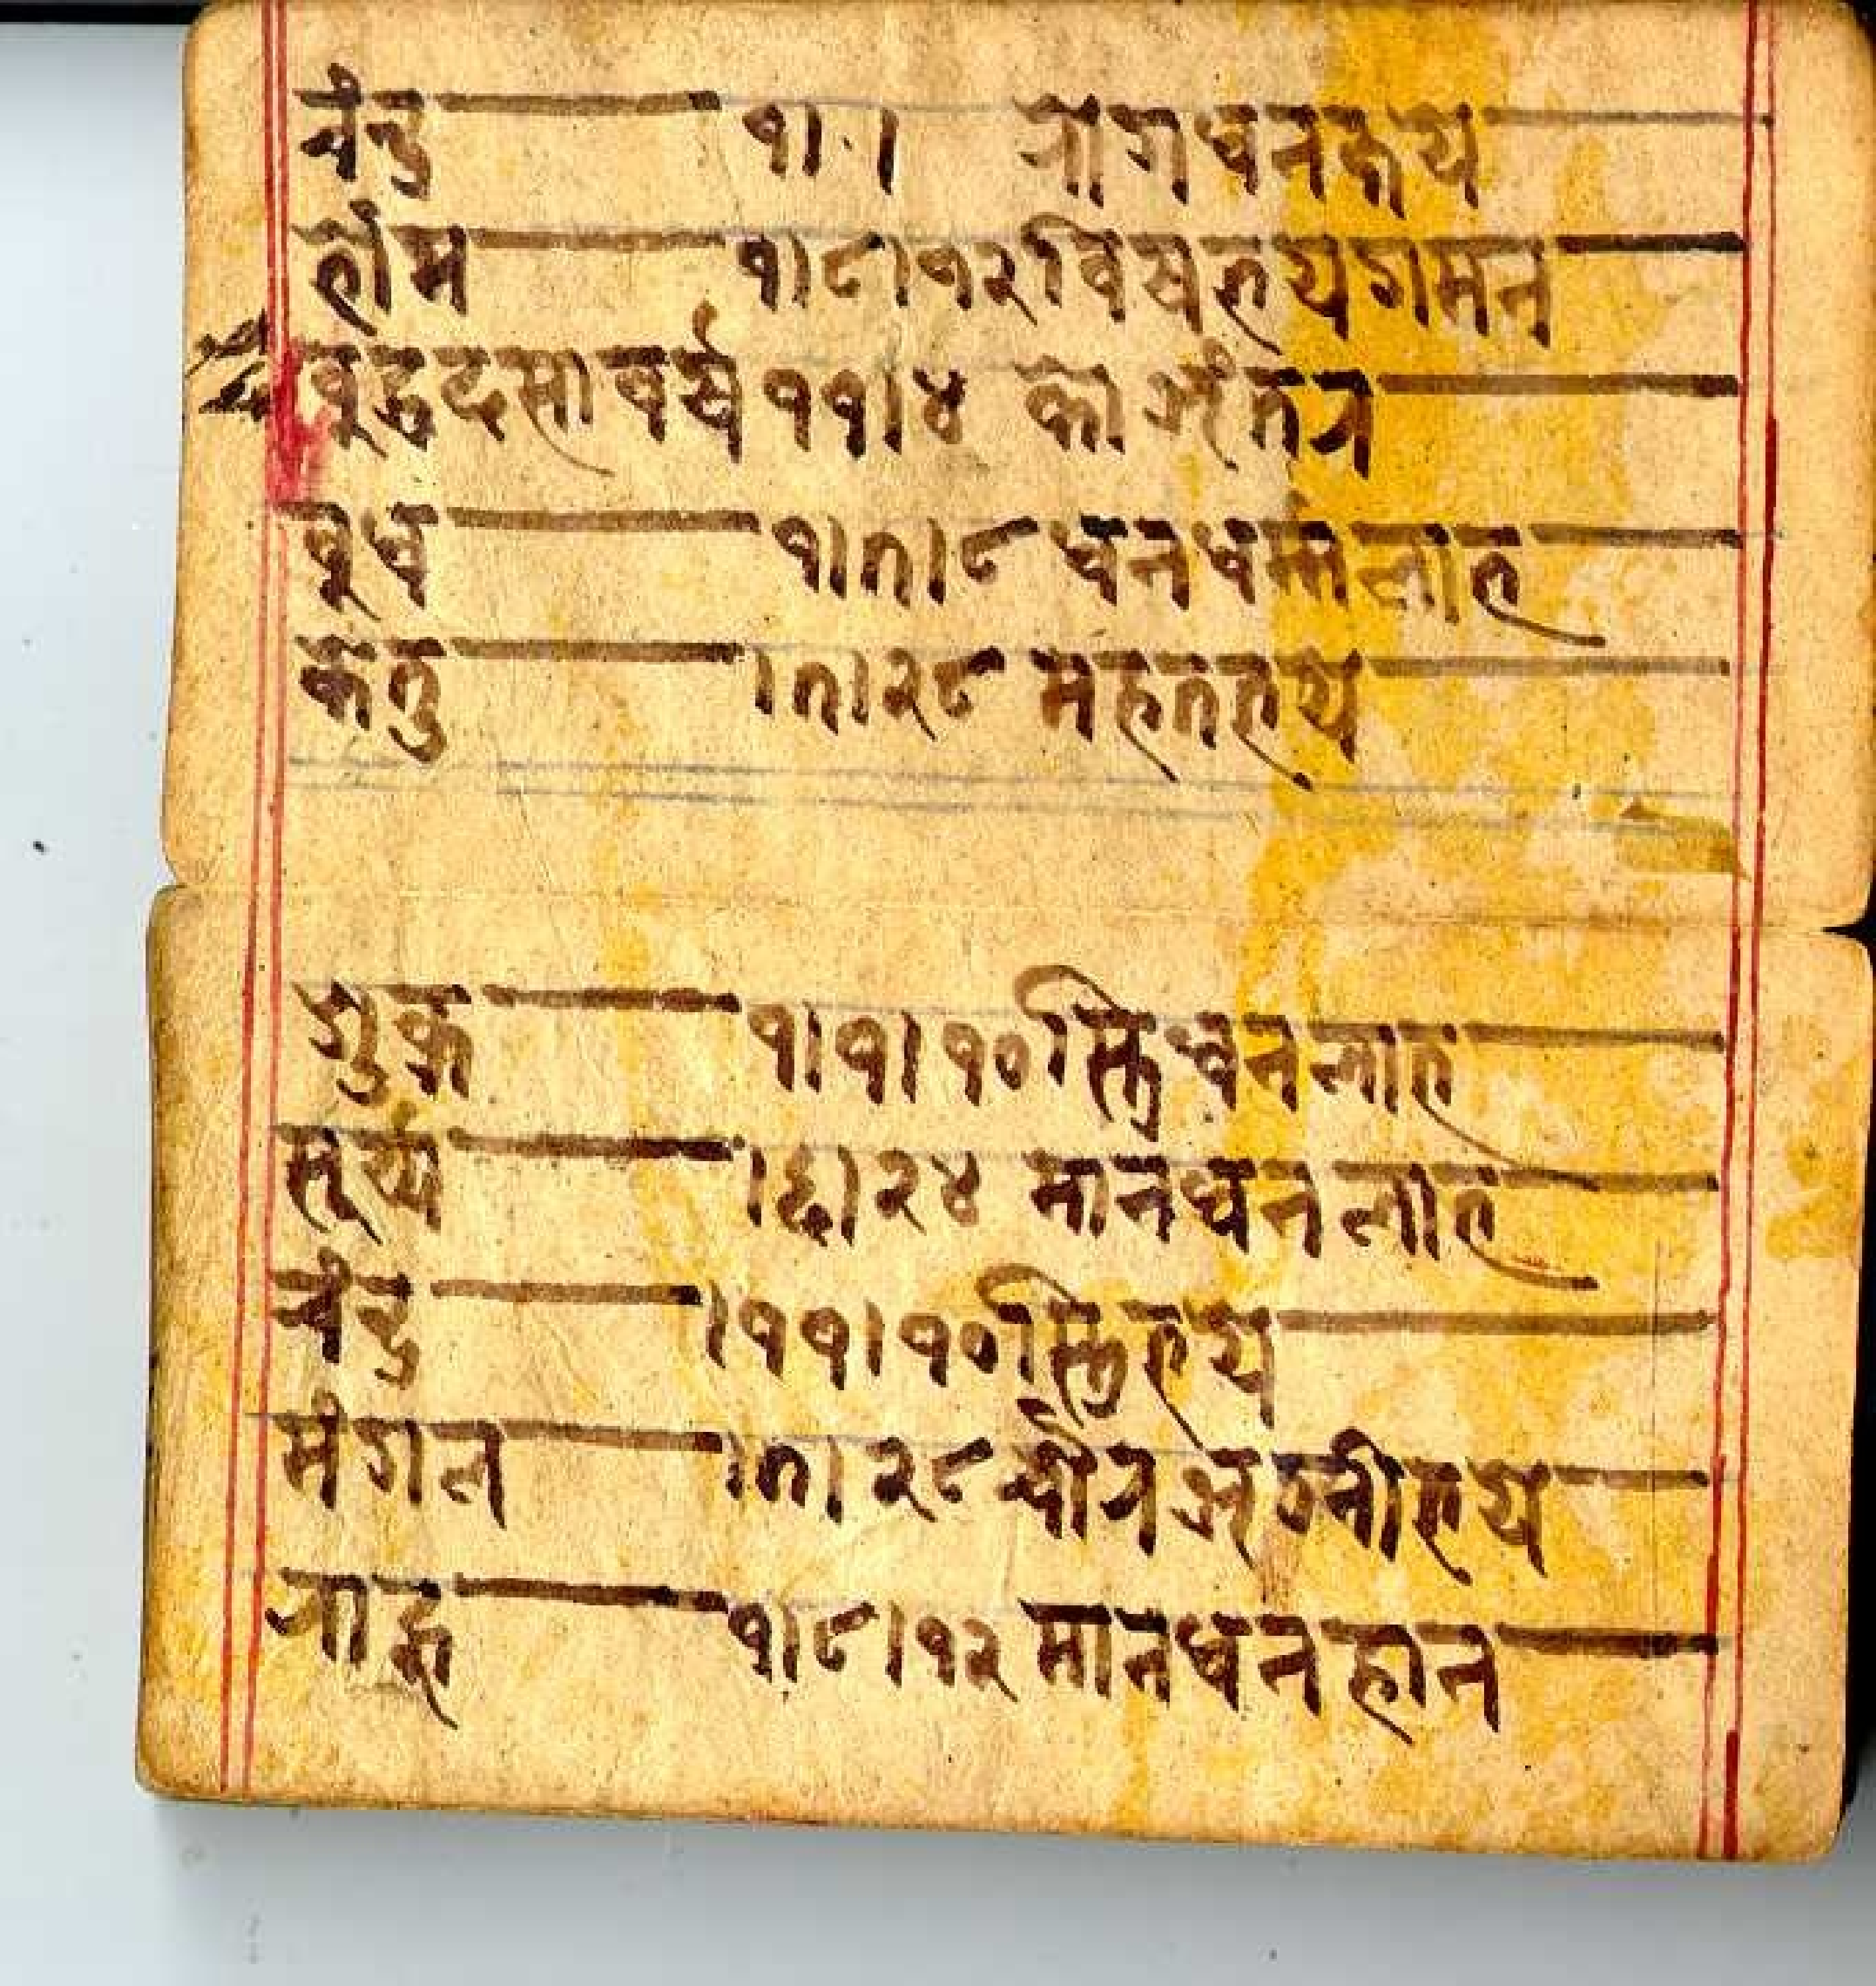 चंद्र १।०। रागधनक्षय
भौम १।८।१२ विषभयगमन
बूद्धदसा वर्ष ११।४ को अंतर
बूध १।७।८ धनधर्म्मलाभ
केतु ।७।२८ महतभय
शुक्र १।१।१० स्त्रिधनलाभ
सूर्य्य ।६।२४ मानधनलाभ
चंद्र ।११।१० स्त्रिभय
मंगल ।७।२८ चौर अग्नीभय
राहु १।८।१२ मानधनहान